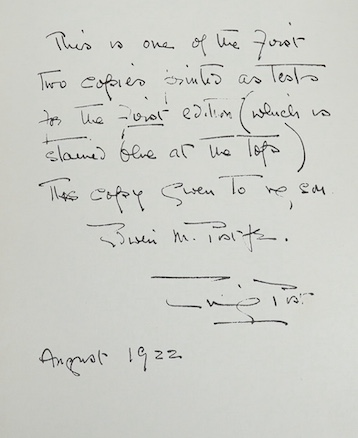 This is one of the First
Two copies printed as Tests
for The First edition (which is
stained blue at the Tops)
This copy given To my son
Edwin M. Post Jr.
Emily Post
August 1922